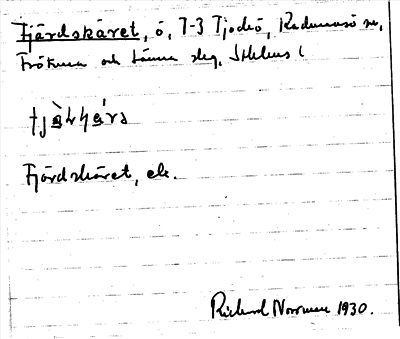 Fjärdskäret, ö, 7-3 Tjockö, Rådmansö sn,
Frötuna och Länna slg, Sthlms l
Fjärdskäret, ek.
Richard Norrman 1930.